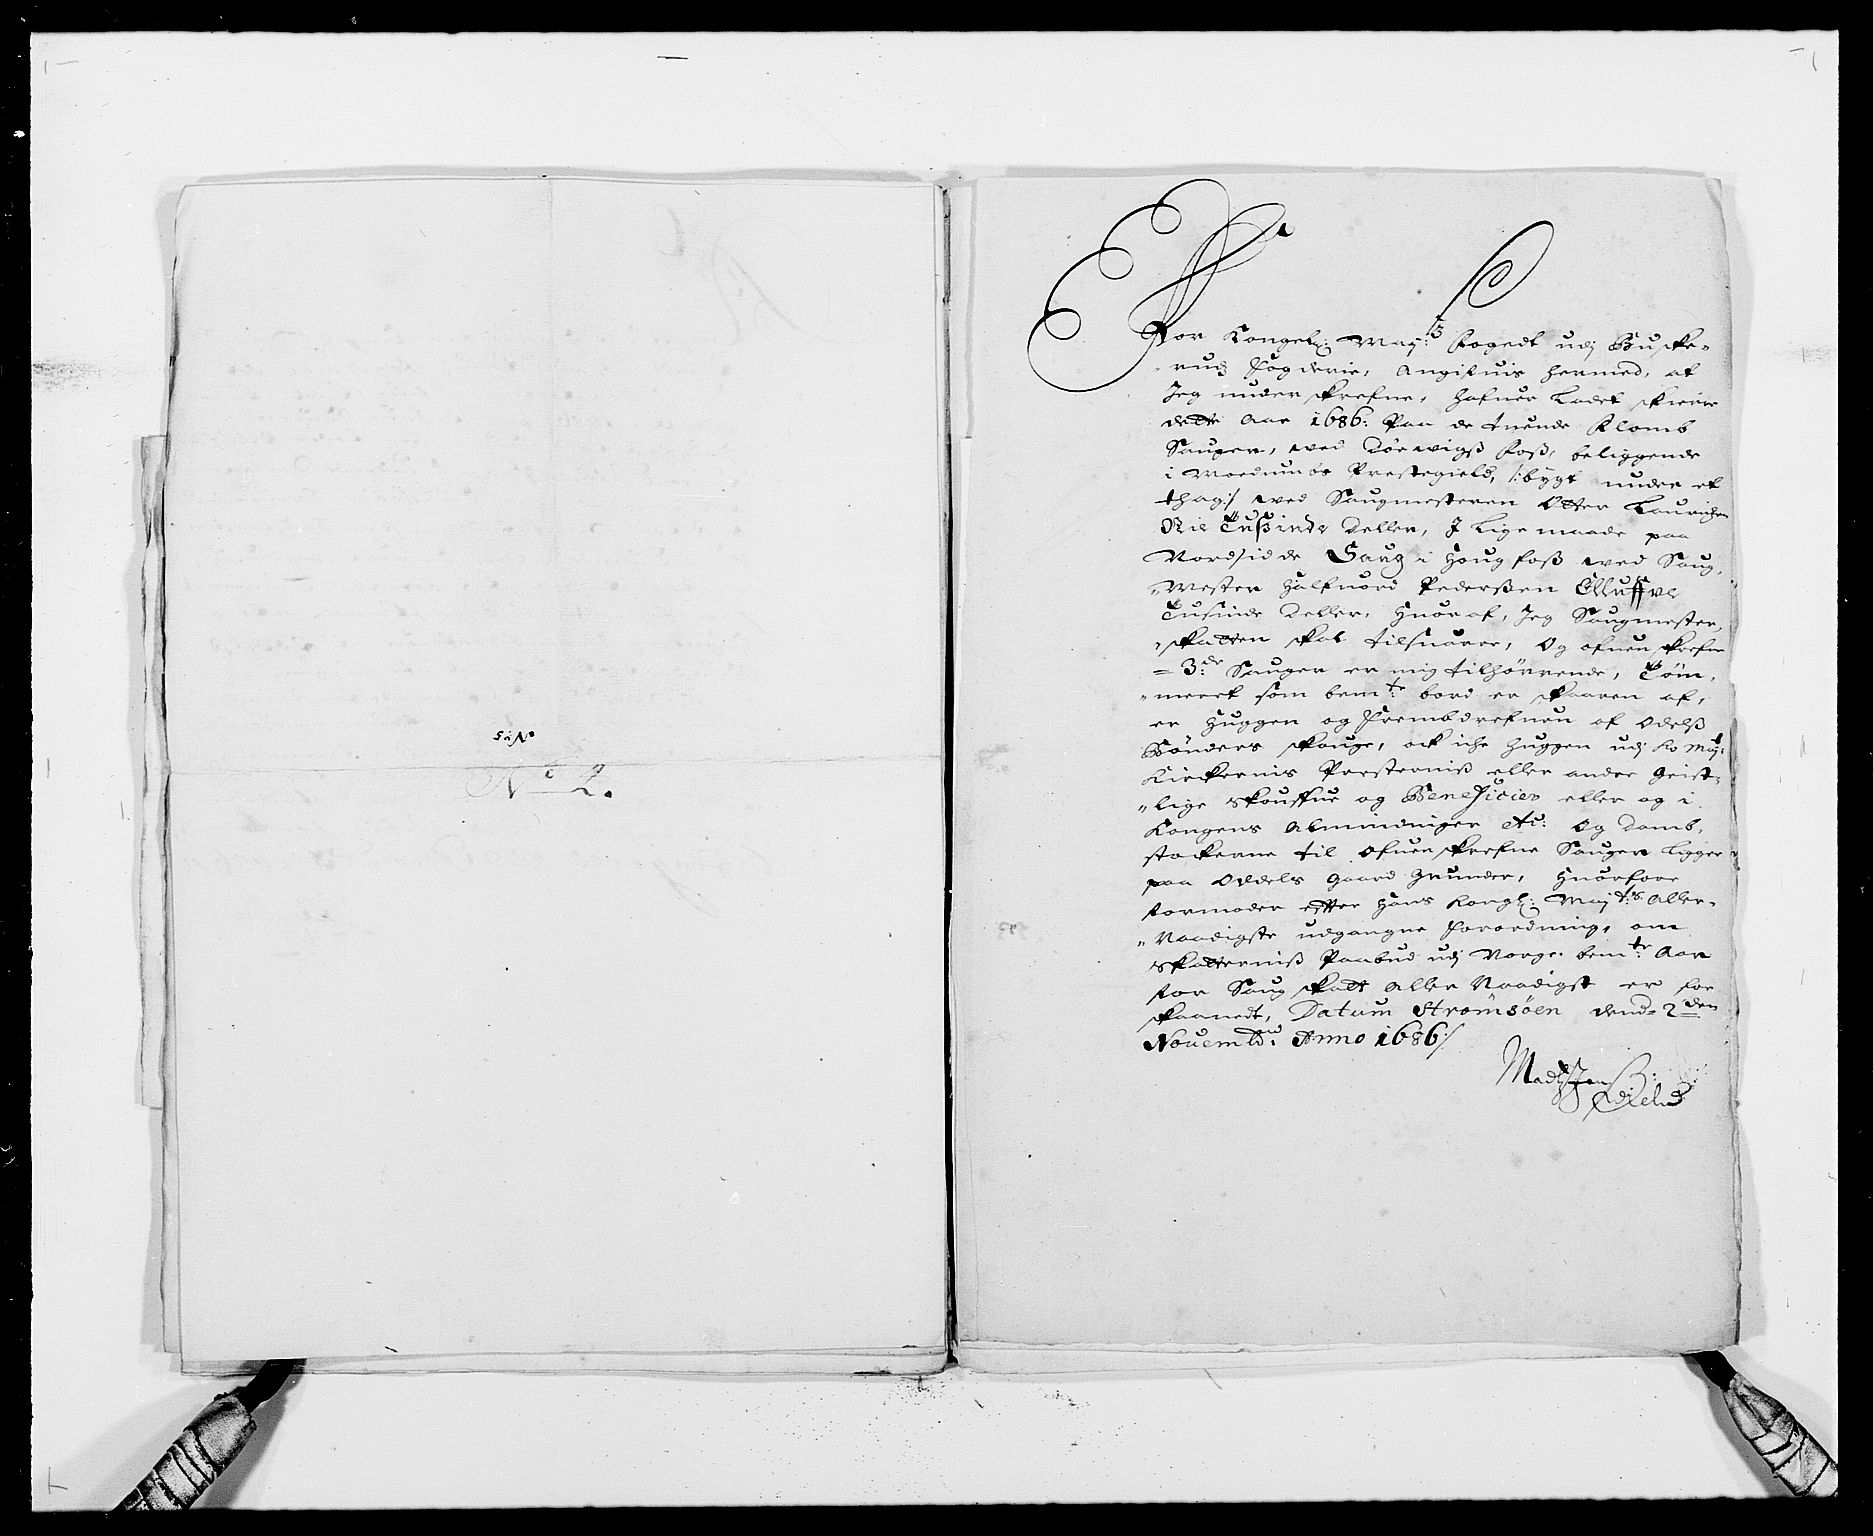 No 5
No 2.
For Kongel: May:ts Fogedt udj Buske-
rudz Fogderie, Angifuis hermed, at
Jeg underskrefne, hafuer Ladet skiere
dette Aar 1686: Paa de tuende Klomb
Sauger, ved Döewigß Foß, beliggende
i Moedumbs Prestegield, /:bygt under et
thag:/ ved Saugmesteren Otter Lauridzen
Nie Tußinde Deller, J lige maade paa
Nordsidde Saug i Houg foß ved Saug,
Mester Halfuord Pederßen Elluffve
Tusinde Deller, Huoraf, Jeg Saugmester,
skatten skal tilsuarer, Og ofuenskrefne
3:de Sauger er mig tilhörrende, Töm,
meret som bem:te bord er skaaren af,
er Huggen og Frembdrefuen af Odelß
Bönders skouge, ock iche Huggen udj Ko May:
Kirckernis Presterniß eller andre Geist-
lige skouffue og Beneficier eller og i
Kongens Almindinger etc: Og Damb,
stockerne til Ofuenskrefne Sauger ligger
paa Oddels Gaard Grunder, Huorfore
formoder efter Hans Kongl: May:ts Aller-
Naadigste udgangne Forordning, om
skatterniß Paabud udj Norge bem:te Aar
for Saug skatt Aller Naadigst er for
skaanedt, Datum Strömsöen dend 2den
Nouembr: Anno 1686/